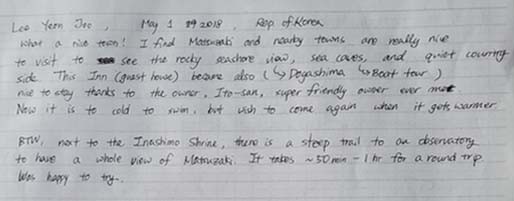 Lee Yeon Joo, May 1 2018, Rep of Korea
What a nice town! I find Matsuzaki and nearby towns are really nice
to visit to see the rocky seashore view, sea caves, and quiet country
side. This Inn (guest house) became also (↳ Dogashima ↳ Boat tour)
nice to stay thanks to the owner, Ito-san, super friendly owner ever met
Now it is to cold to swim, but wish to come again when it gets warmer.
BTW, next to the Inashimo Shrine, there is a steep trail to an observatory
to have a whole view of Matsuzaki. It takes ~50 min - 1 hr for a round trip
Was happy to try.